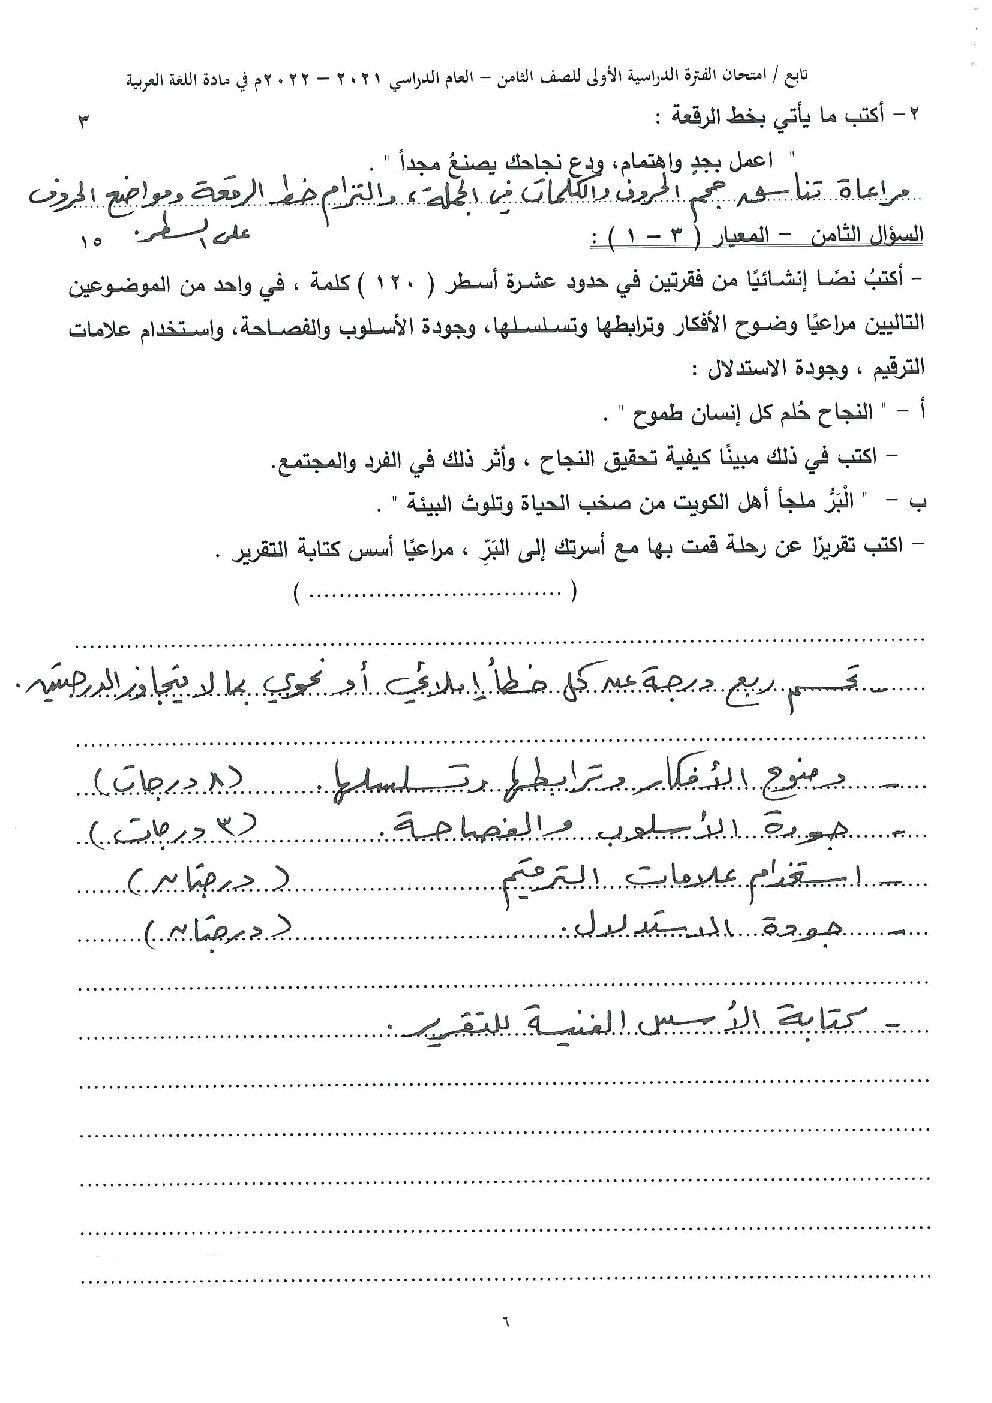 تابع / امتحان الفترة الدراسية الأولى للصف الثامن – العام الدراسي ٢٠٢١ – ٢٠٢٢م في مادة اللغة العربية
٢ – أكتب ما يأتي بخط الرقعة : ٣
" اعمل بجدٍ واهتمام، ودع نجاحك يصنعُ مجداً " .
مراعاة تناسق حجم الحروف والكلمات في الجملة، والتزام خط الرقعة ومواضع الحروف
على السطر.
السؤال الثامن – المعيار ( ٣ – ١ ) : ١٥
– أكتبُ نصًا إنشائيًا من فقرتين في حدود عشرة أسطر ( ١٢٠ ) كلمة ، في واحد من الموضوعين
التاليين مراعيًا وضوح الأفكار وترابطها وتسلسلها، وجودة الأسلوب والفصاحة، واستخدام علامات
الترقيم ، وجودة الاستدلال :
أ – " النجاح حُلم كل إنسان طموح " .
– اكتب في ذلك مبينًا كيفية تحقيق النجاح ، وأثر ذلك في الفرد والمجتمع.
ب – " الْبَرُّ ملجأ أهل الكويت من صخب الحياة وتلوث البيئة " .
– اكتب تقريرًا عن رحلة قمت بها مع أسرتك إلى البَرِّ ، مراعيًا أسس كتابة التقرير .
( ................................ )
– تحسم ربع درجة عن كل خطأ إملائي أو نحوي بما لا يتجاوز الدرجتين.
– وضوح الأفكار وترابطها وتسلسلها. (٨ درجات)
– جودة الأسلوب والفصاحة. (٣ درجات)
– استخدام علامات الترقيم (درجتان)
– جودة الاستدلال. (درجتان)
– كتابة الأسس الفنية للتقرير.
٦